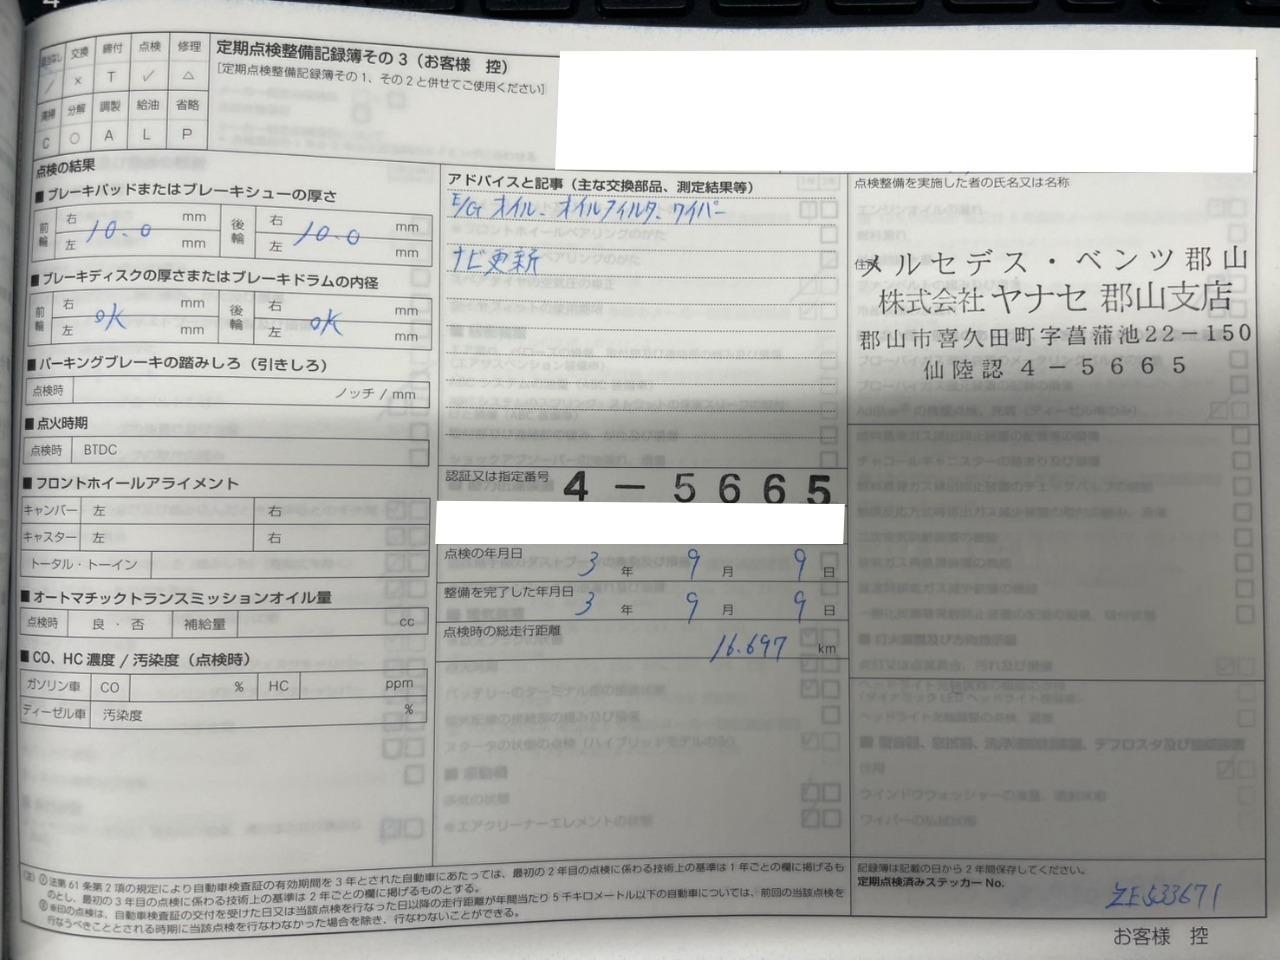 交換 締付 点検 修理
／ × T ✓ △
分解 調製 給油 省略
C ○ A L P
定期点検整備記録簿その3（お客様 控）
［定期点検整備記録簿その1、その2と併せてご使用ください］
点検の結果
■ブレーキパッドまたはブレーキシューの厚さ
前輪 右 mm 後輪 右 mm
10.0 10.0
左 mm 左 mm
■ブレーキディスクの厚さまたはブレーキドラムの内径
前輪 右 mm 後輪 右 mm
ok ok
左 mm 左 mm
■パーキングブレーキの踏みしろ（引きしろ）
点検時 ノッチ / mm
■点火時期
点検時 BTDC
■フロントホイールアライメント
キャンバー 左 右
キャスター 左 右
トータル・トーイン
■オートマチックトランスミッションオイル量
点検時 良・否 補給量 cc
■CO、HC濃度 / 汚染度（点検時）
ガソリン車 CO % HC ppm
ディーゼル車 汚染度 %
アドバイスと記事（主な交換部品、測定結果等）
E/G オイル、オイルフィルタ、ワイパー
ナビ更新
認証又は指定番号 4－5665
点検の年月日 3年 9月 9日
整備を完了した年月日 3年 9月 9日
点検時の総走行距離 16.697 km
点検整備を実施した者の氏名又は名称
住所
メルセデス・ベンツ郡山
株式会社 ヤナセ 郡山支店
郡山市喜久田町字菖蒲池22－150
仙陸認 4－5665
記録簿は記載の日から2年間保存してください。
定期点検済みステッカー No.
ZE533671
（注）① 法第61条第2項の規定により自動車検査証の有効期間を3年とされた自動車にあたっては、最初の2年目の点検に係わる技術上の基準は1年ごとの欄に掲げるも
のとし、最初の3年目の点検に係わる技術上の基準は2年ごとの欄に掲げるものとする。
② ※印の点検は、自動車検査証の交付を受けた日又は当該点検を行なった日以降の走行距離が年間当たり5千キロメートル以下の自動車については、前回の当該点検を
行なうべきこととされる時期に当該点検を行なわなかった場合を除き、行なわないことができる。
お客様 控